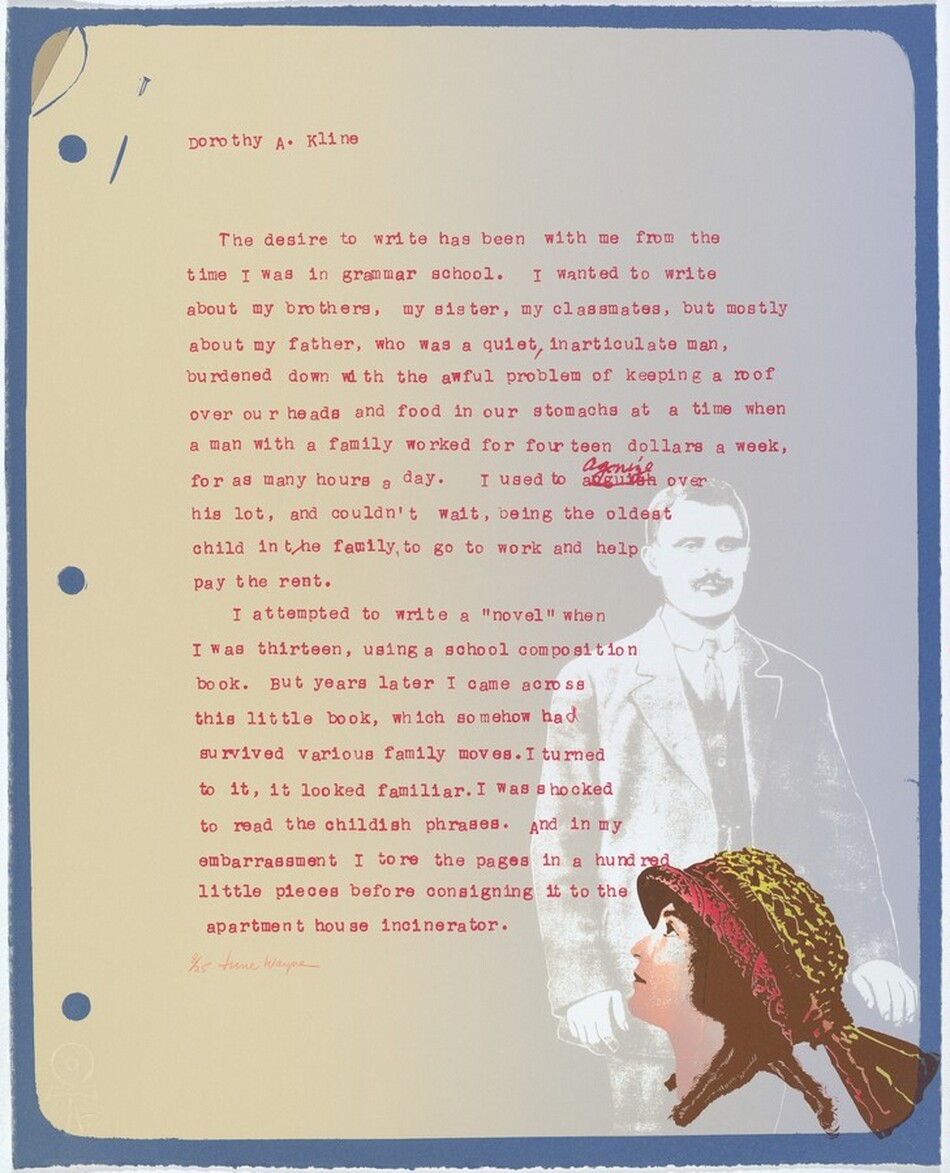 Dorothy A. Kline
The desire to write has been with me from the
time I was in grammar school. I wanted to write
about my brothers, my sister, my classmates, but mostly
about my father, who was a quiet, inarticulate man,
burdened down with the awful problem of keeping a roof
over our heads and food in our stomachs at a time when
a man with a family worked for fourteen dollars a week,
for as many hours a day. I used to agonize over
his lot, and couldn't wait, being the oldest
child in the family, to go to work and help
pay the rent.
I attempted to write a "novel" when
I was thirteen, using a school composition
book. But years later I came across
this little book, which somehow had
survived various family moves. I turned
to it, it looked familiar. I was shocked
to read the childish phrases. And in my
embarrassment I tore the pages in a hundred
little pieces before consigning it to the
apartment house incinerator.
9/25 June Wayne